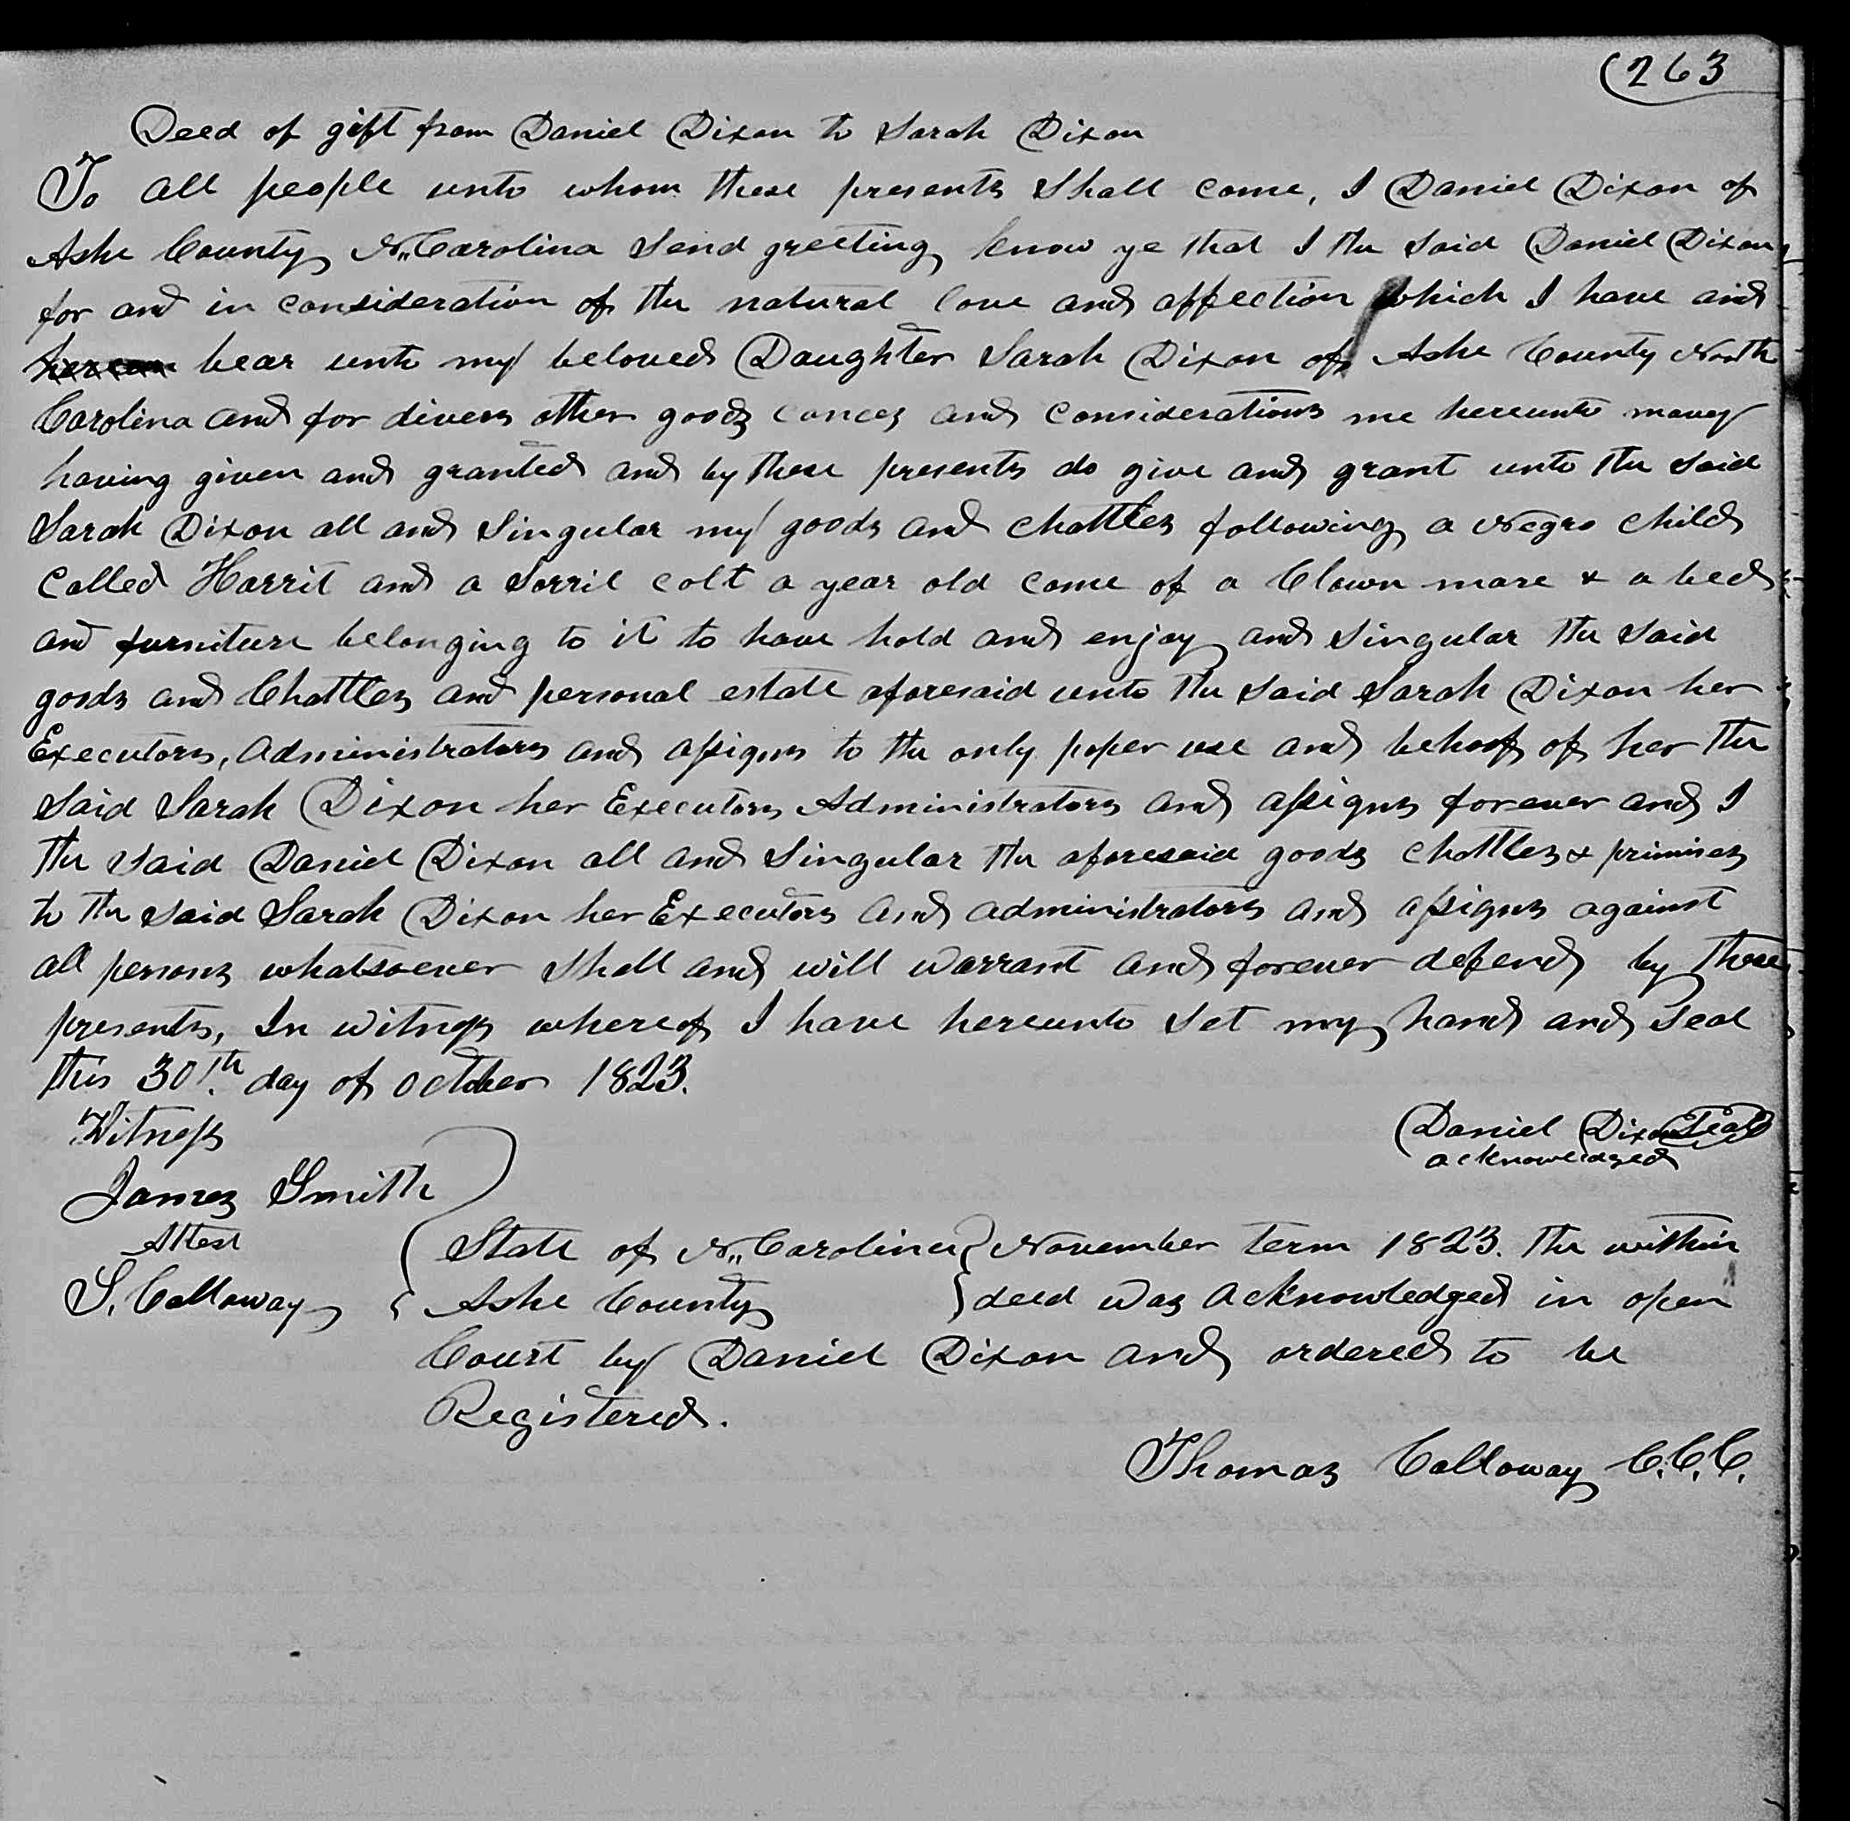 (263
Deed of gift from Daniel Dixon to Sarah Dixon
To all people unto whom these presents shall come, I Daniel Dixon of
Ashe County N,,Carolina send greeting know ye that I the said Daniel Dixon
for and in consideration of the natural love and affection which I have and
bear unto my beloved Daughter Sarah Dixon of Ashe County North
Carolina and for divers other good and considerations me hereunto
having given and granted and by these presents do give and grant unto the said
Sarah Dixon all and singular my goods and chattles following a Negro child
Called Harrit and a Sorril colt a year old come of a Clown mare & a bed
and furniture belonging to it to have hold and enjoy and singular the said
goods and Chattles and personal estate aforesaid unto the said Sarah Dixon her
Executors, administrators and assigns to the only poper use and behoof of her the
said Sarah Dixon her Executors Administrators and assigns forever and I
the said Daniel Dixon all and singular the aforesaid goods chattles & primises
to the said Sarah Dixon her Executors and administrators and assigns against
all persons whatsoever shall and will warrant and forever defend by these
presents, In witness whereof I have hereunto set my hand and seal
this 30th day of october 1823.
Witness
Daniel Dixon Seal
acknowledged
James Smith
Attest
S. Calloway
State of N,,Carolina November term 1823. the within
Ashe County deed was acknowledged in open
Court by Daniel Dixon and ordered to be
Registered.
Thomas Calloway C.C.C.